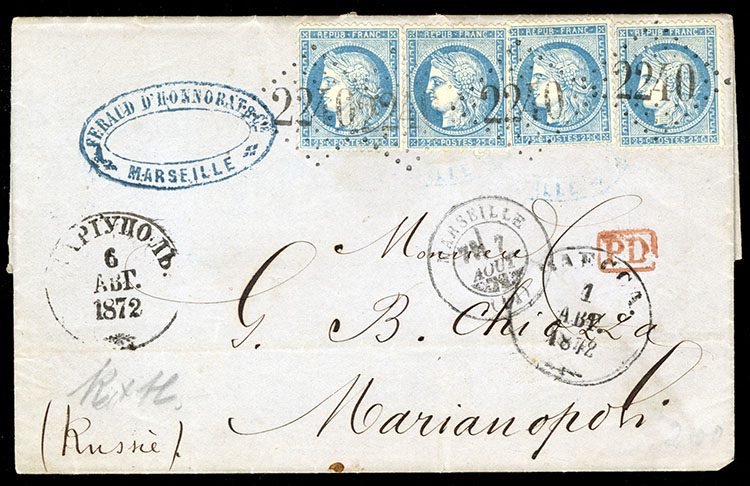 REPUB·FRANC· REPUB·FRANC· REPUB·FRANC· REPUB·FRANC·
2240 2240 2240 2240
25c·POSTES·25c 25c·POSTES·25c 25c·POSTES·25c 25c·POSTES·25c
FERAUD D'HONNORAT & Cie
MARSEILLE
МАРІУПОЛЬ.
6
АВГ.
1872
MARSEILLE
7
AOUT
PD
ОДЕССА.
1
АВГ.
1872
Monsieur
G. B. Chiozza
Marianopoli
(Russie).